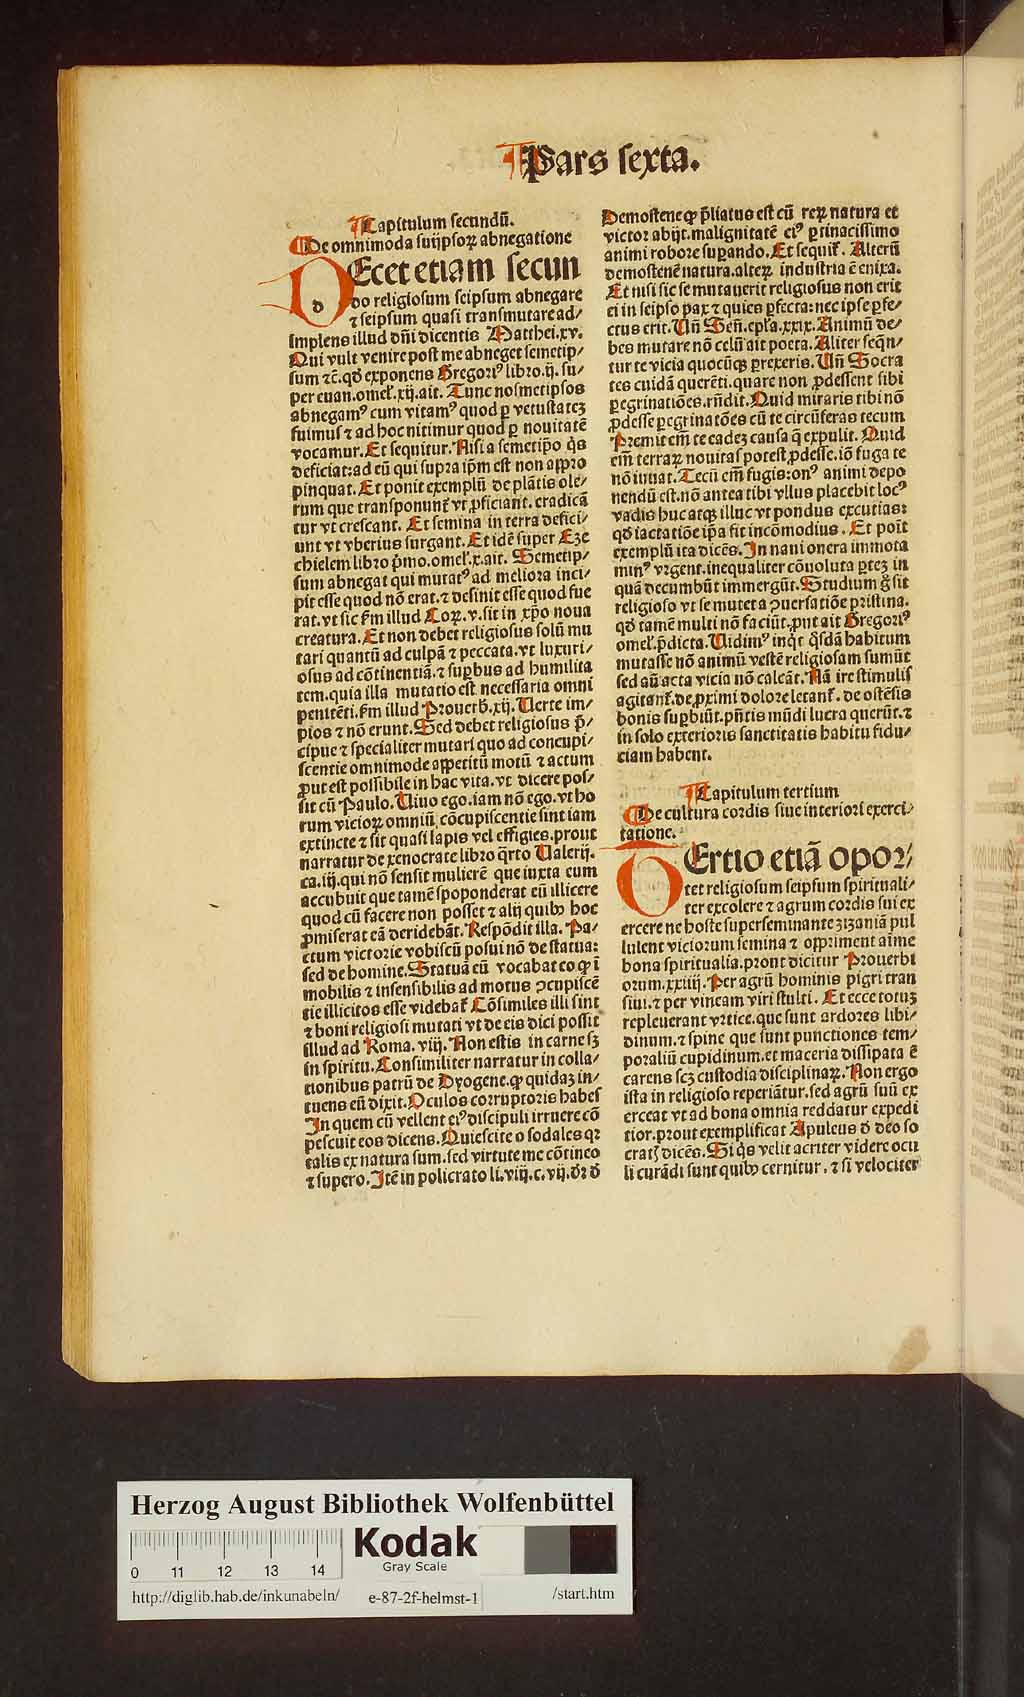 Pars sexta.
Capitulum secundū.
De omnimoda suijpsoꝝ abnegatione
DEcet etiam secun
do religiosum seipsum abnegare
⁊ seipsum quasi transmutare ad/
implens illud dñi dicentis Matthei.xv.
Qui vult venire post me abneget semetip/
sum ⁊c̄.qđ exponens Gregoriꝰ libro.ij. su/
per euan.omel̓.xij.ait. Tunc nosmetipsos
abnegamꝰ cum vitamꝰ quod ꝑ vetustateꝫ
fuimus ⁊ ad hoc nitimur quod ꝑ nouitatē
vocamur.Et sequitur.Nisi a semetip̄o q̇s
deficiat:ad eū qui supra ip̄m est non appro
pinquat.Et ponit exemplū de plātis ole/
rum que transponunt̄ vt ꝓficiant.eradicā
tur vt crescant. Et semina in terra defici/
unt vt vberius surgant.Et idē super Eze
chielem libro p̄mo.omel̓.x.ait. Semetip/
sum abnegat qui mutatꝰ ad meliora inci/
pit esse quod nō erat.⁊ desinit esse quod fue
rat.vt sic ẜm illud Coꝝ.v.sit in xp̄o noua
creatura.Et non debet religiosus solū mu
tari quantū ad culpā ⁊ peccata.vt luxuri/
osus ad cōtinentiā.⁊ suꝑbus ad humilita
tem.quia illa mutatio est necessaria omni
penitēti.ẜm illud Prouerb.xij. Uerte im/
pios ⁊ nō erunt.Sed debet religiosus p̄/
cipue ⁊ specialiter mutari quo ad concupi/
scentie omnimode appetitū motū ⁊ actum
ꝓut est possibile in hac vita.vt dicere pos/
sit cū Paulo. Uiuo ego.iam nō ego.vt ho
rum vicioꝝ omniū cōcupiscentie sint iam
extincte ⁊ sit quasi lapis vel effigies.prout
narratur de xenocrate libro q̄rto Ualerij.
ca.iij.qui nō sensit mulierē que iuxta eum
accubuit que tamē spoponderat eū illicere
quod cū facere non posset ⁊ alij quibꝰ hoc
ꝓmiserat eā deridebāt.Respōdit illa. Pa/
ctum victorie vobiscū posui nō de statua:
sed de homine.Statuā eū vocabat eo ꝙ ī
mobilis ⁊ insensibilis ad motus ꝯcupiscē
tie illicitos esse videbat̄ Cōsimiles illi sint
⁊ boni religiosi mutati vt de eis dici possit
illud ad Roma.viij.Non estis in carne sꝫ
in spiritu.Consimiliter narratur in colla/
tionibus patrū de Dyogene.ꝙ quidaꝫ in/
tuens eū dixit.Oculos corruptoris habes
In quem cū vellent eiꝰ discipuli irruere cō
pescuit eos dicens.Quiescite o sodales qꝛ
talis ex natura sum.sed virtute me cōtineo
⁊ supero.Itē in policrato li.viij.c.vij.đꝛ đ
Demostene ꝙ p̄liatus est cū reꝝ natura et
victor abijt.malignitatē eiꝰ ꝑtinacissimo
animi robore suꝑando.Et sequit̄. Alterū
demostenē natura.alteꝝ industria ē enixa.
Et nisi sic se mutauerit religiosus non erit
ei in seipso pax ⁊ quies ꝑfecta:nec ipse ꝑfe/
ctus erit.Uñ Señ.ep̄la.xxix.Animū de/
bes mutare nō celū ait poeta.Aliter seq̄n/
tur te vicia quocūqꝫ ꝑrexeris. Uñ Socra
tes cuidā querēti.quare non ꝓdessent sibi
ꝑegrinatiōes.rn̄dit.Quid miraris tibi nō
ꝓdesse ꝑegrinatōes cū te circūferas tecum
Premit em̄ te eadeꝫ causa q̄ expulit. Quid
em̄ terraꝝ nouitas potest ꝓdesse.iō fuga te
nō iuuat.Tecū em̄ fugis:onꝰ animi depo
nendū est.nō antea tibi vllus placebit locꝰ
vadis huc atqꝫ illuc vt pondus excutias:
qđ iactatiōe ip̄a fit incōmodius. Et poīt
exemplū ita dicēs.In naui onera immota
minꝰ vrgent.inequaliter cōuoluta ꝑteꝫ in
quā decumbūt immergūt.Studium ḡ sit
religioso vt se mutet a ꝯuersatiōe pristina.
qđ tamē multi nō faciūt.ꝓut ait Gregoriꝰ
omel̓.p̄dicta.Uidimꝰ inq̄t q̇sdā habitum
mutasse nō animū vestē religiosam sumūt
sed aū acta vicia nō calcāt.Nā ire stimulis
agitant̄.de ꝓximi dolore letant̄. de ostēsis
bonis suꝑbiūt.p̄ntis mūdi lucra querūt.⁊
in solo exterioris sanctitatis habitu fidu/
ciam habent.
Capitulum tertium
De cultura cordis siue interiori exerci/
tatione.
TErtio etiā opoꝛ/
tet religiosum seipsum spirituali/
ter excolere ⁊ agrum coꝛdis sui ex
ercere ne hoste superseminante zizaniā pul
lulent viciorum semina ⁊ oppriment aīme
bona spiritualia.pꝛout dicitur Prouerbi
orum.xxiiij.Per agrū hominis pigri tran
siui.⁊ per vineam viri stulti. Et ecce totuꝫ
repleuerant vꝛtice.que sunt ardoꝛes libi/
dinum.⁊ spine que sunt punctiones tem/
poꝛaliū cupidinum.et maceria dissipata ē
carens scꝫ custodia disciplinaꝝ. Non ergo
ista in religioso reperiātur.sed agrū suū ex
erceat vt ad bona omnia reddatur expedi
tior.prout exemplificat Apuleus đ deo so
cratꝭ dicēs.Si q̇s velit acriter videre ocu
li curādi sunt quibꝰ cernitur.⁊ si velociter
Herzog August Bibliothek Wolfenbüttel
Kodak
Gray Scale
0 11 12 13 14
http://diglib.hab.de/inkunabeln/ e-87-2f-helmst-1 /start.htm